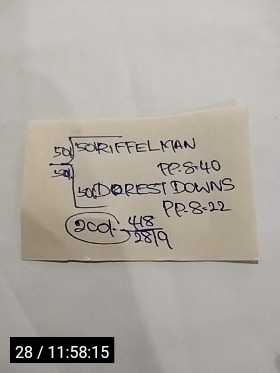 50/ 50/RIFFELMAN
PP.8.40
50/
50/DOREST DOWNS
PP.8.22
200/- 4/8
28/9
28 / 11:58:15